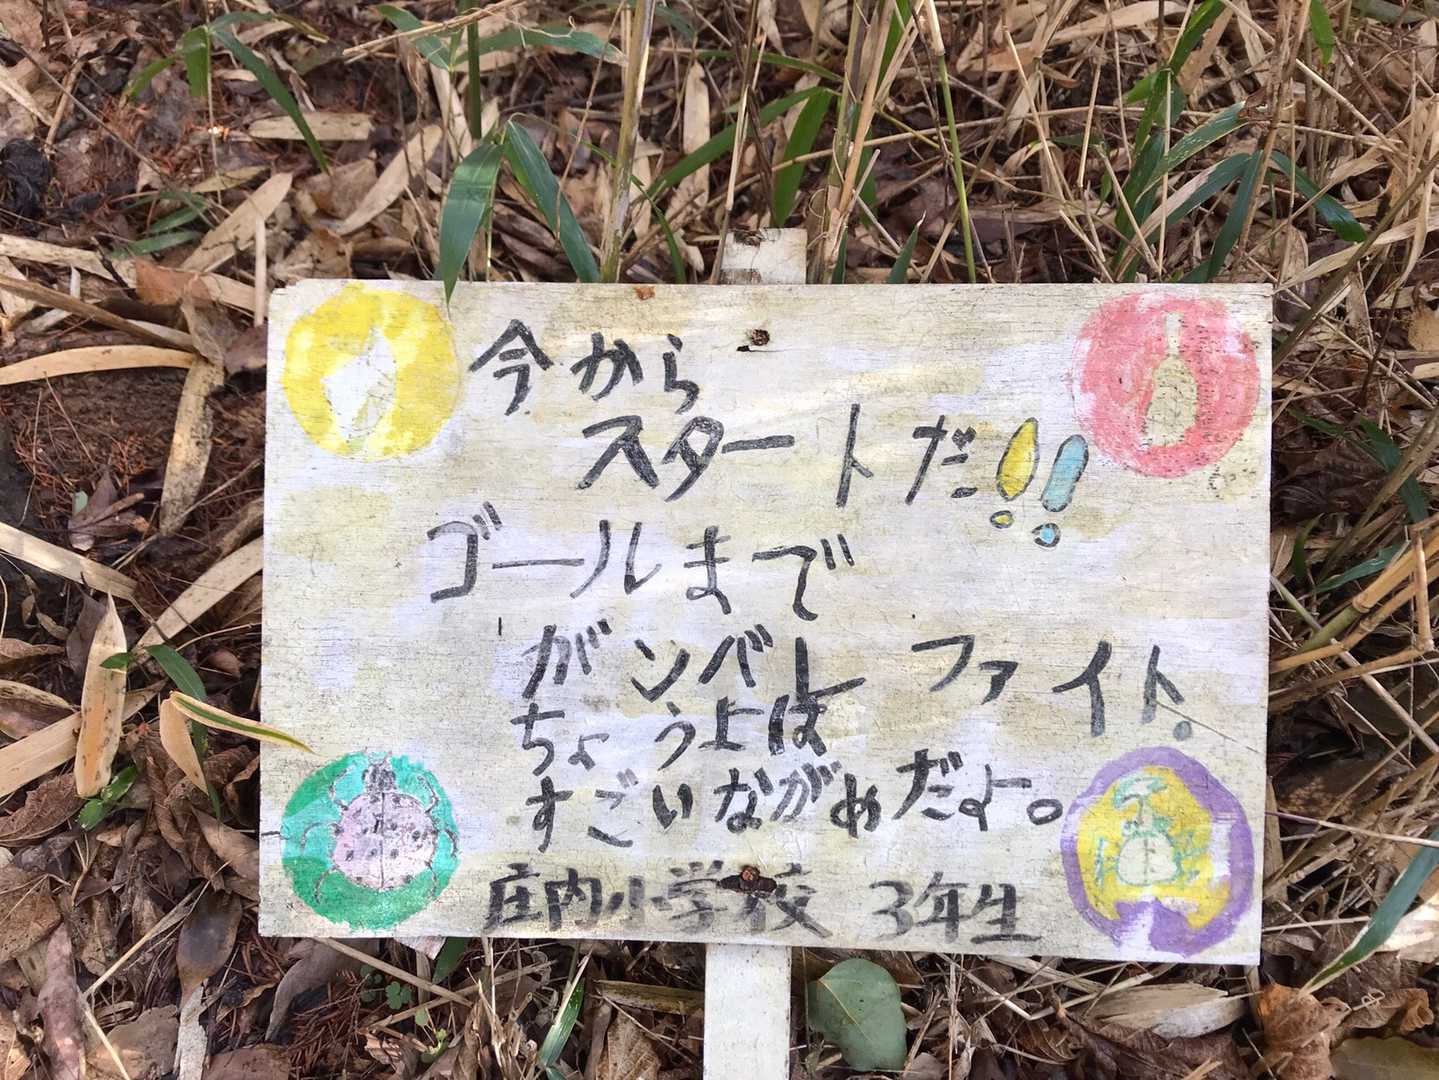 今から
スタートだ!!
ゴールまで
ガンバレ ファイト。
ちょうよは
すごいながめだよ。
庄内小学校 3年生